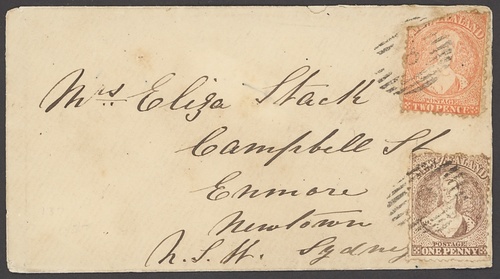 Mrs Eliza Stack
Campbell St
Enmore
Newtown
N.S.W. Sydney
NEW ZEALAND
POSTAGE
TWO PENCE
NEW ZEALAND
POSTAGE
ONE PENNY